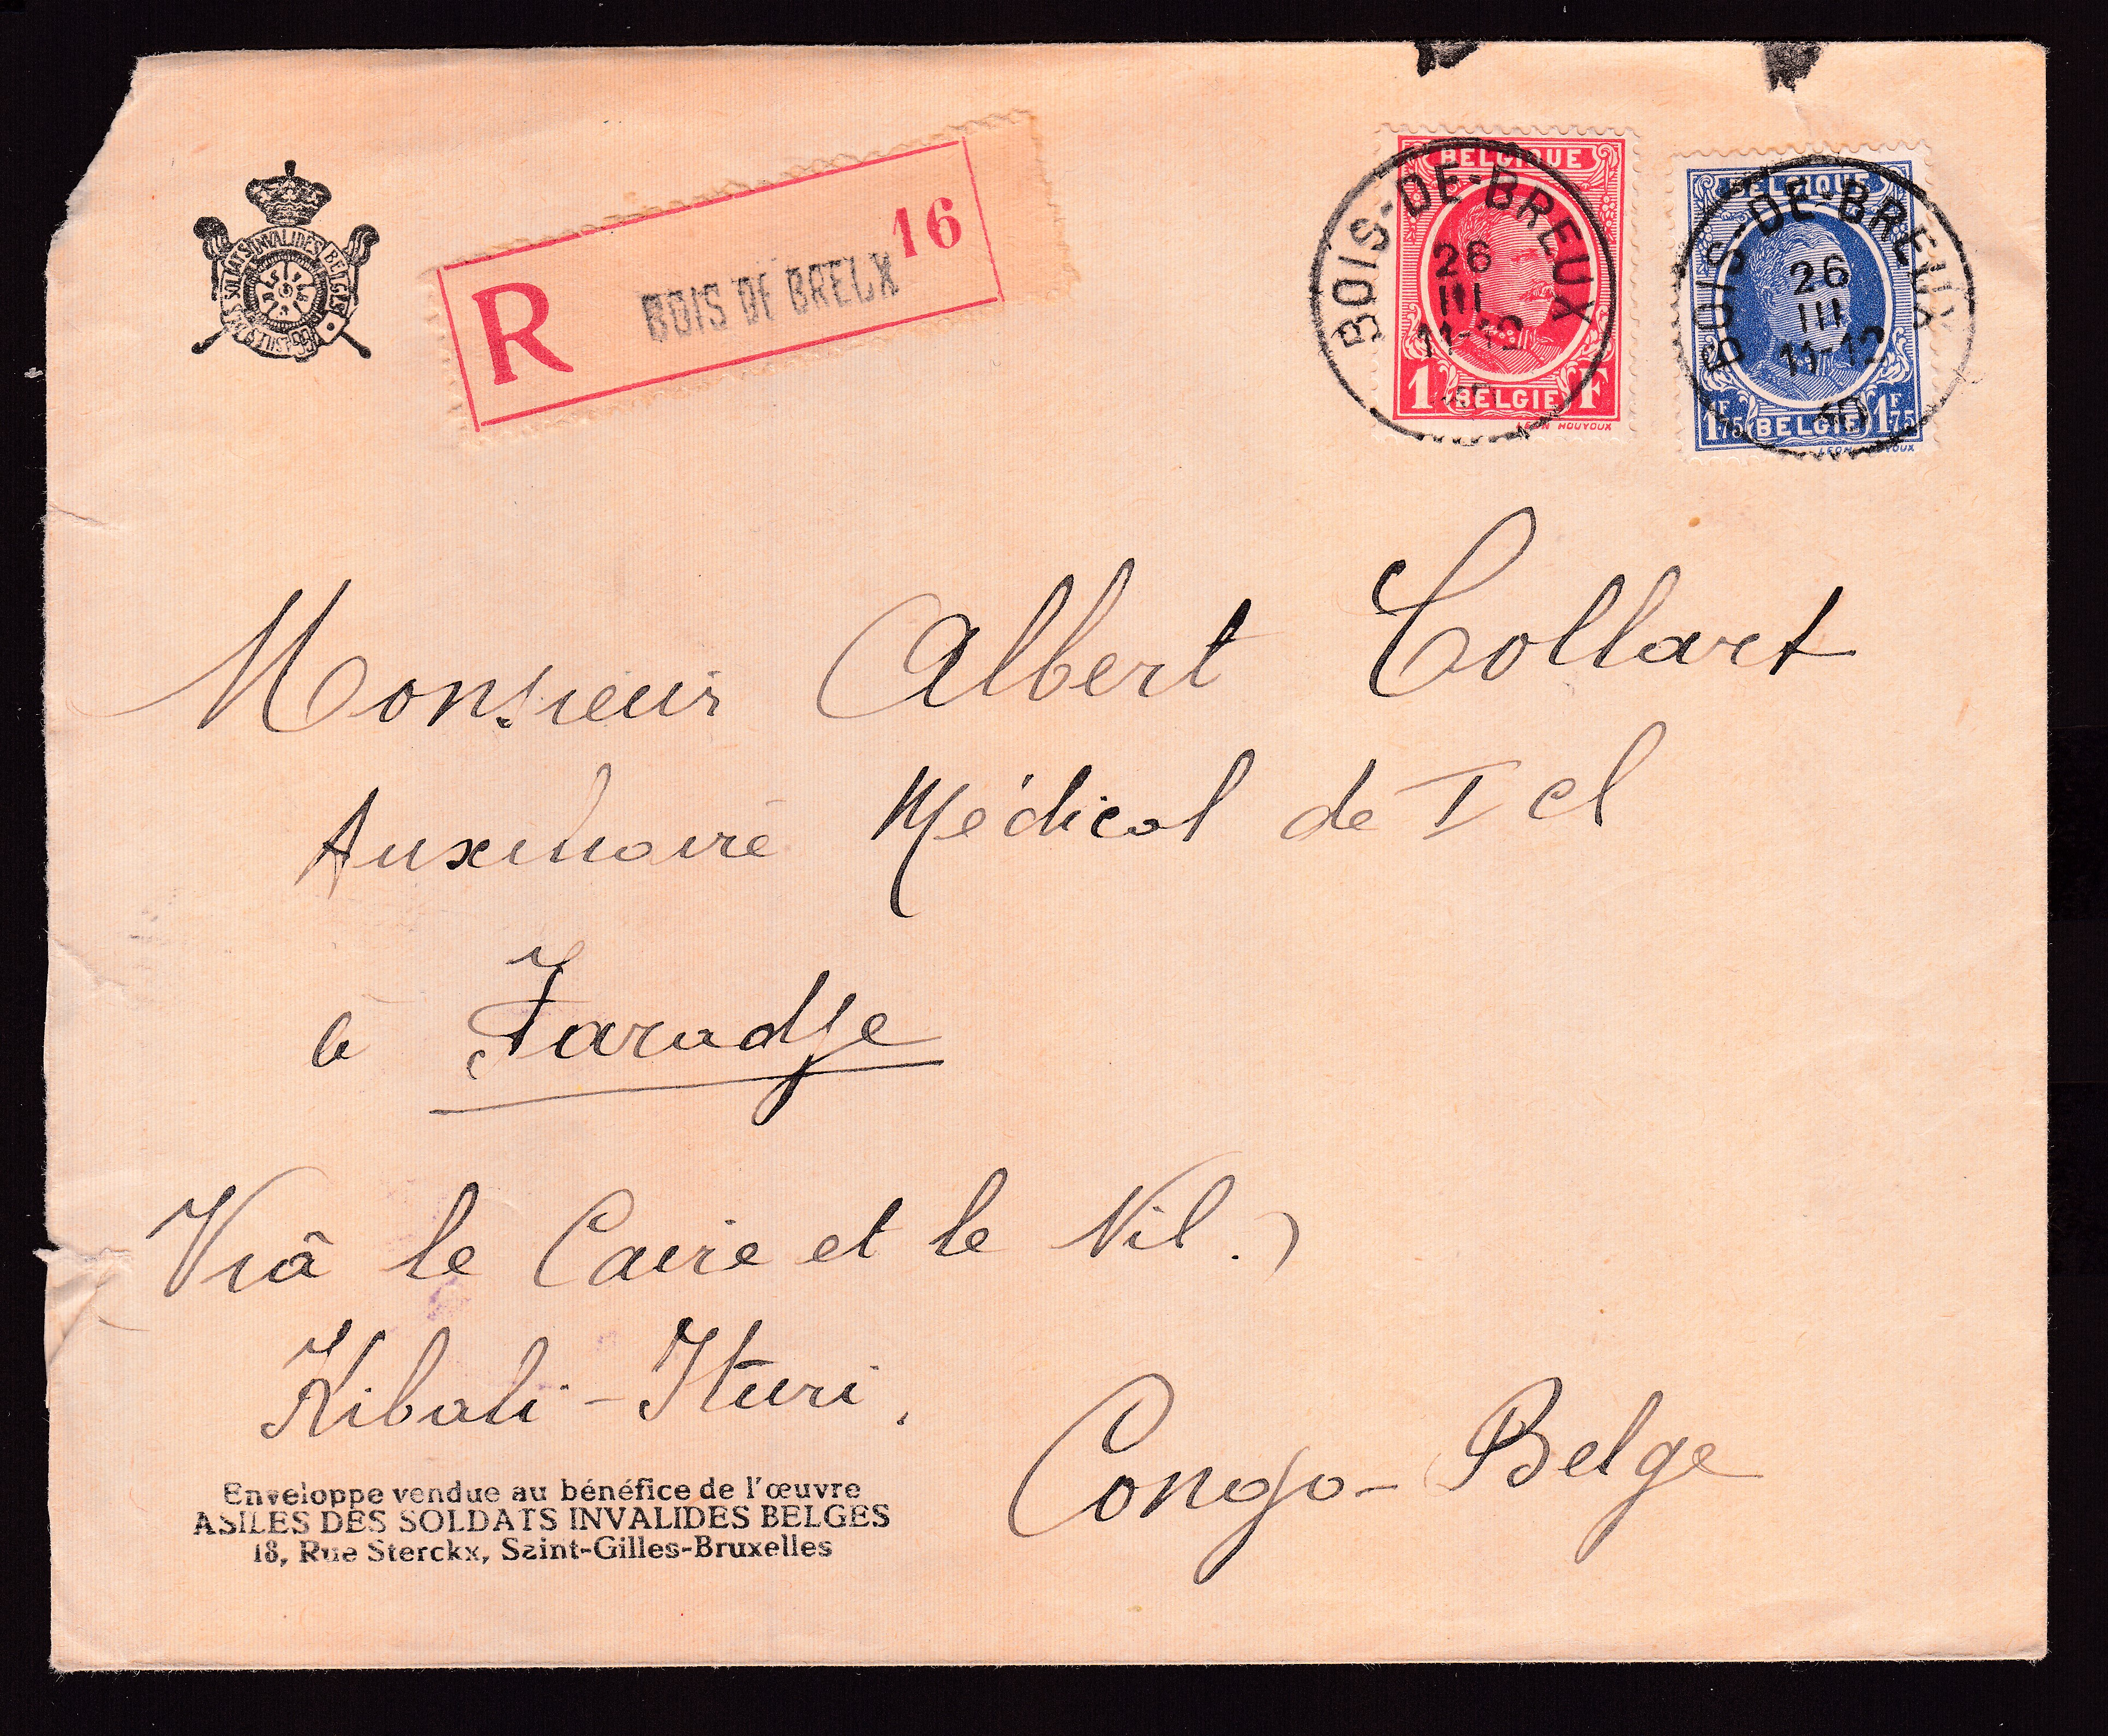 ASILES DES SOLDATS INVALIDES BELGES
R
BOIS DE BREUX
16
BELGIQUE
1 F
BELGIE
LEON HOUYOUX
BOIS-DE-BREUX
26
III
11-12
BELGIQUE
1F75 BELGIE 1F75
LEON HOUYOUX
BOIS-DE-BREUX
26
III
11-12
Monsieur Albert Collart
Auxiliaire Médical de I cl
à Faradje
Viâ le Caire et le Nil.
Kibali-Ituri,
Congo-Belge
Enveloppe vendue au bénéfice de l'œuvre
ASILES DES SOLDATS INVALIDES BELGES
18, Rue Sterckx, Saint-Gilles-Bruxelles